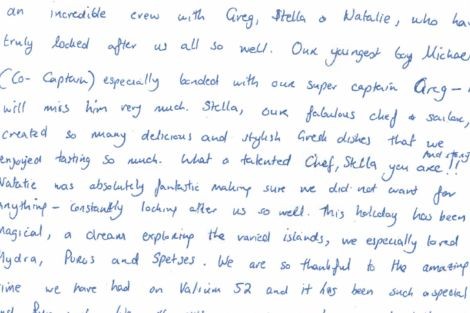 an incredible crew with Greg, Stella & Natalie, who have
truly looked after us all so well. Our youngest boy Michael
(Co-Captain) especially bonded with our super captain Greg -
will miss him very much. Stella, our fabulous chef & sailor,
created so many delicious and stylish Greek dishes that we
enjoyed tasting so much. What a talented Chef, Stella you are!!
Natalie was absolutely fantastic making sure we did not want for
anything - constantly looking after us so well. This holiday has been
magical, a dream exploring the varied islands, we especially loved
Hydra, Poros and Spetses. We are so thankful to the amazing
time we have had on Valium 52 and it has been such a special